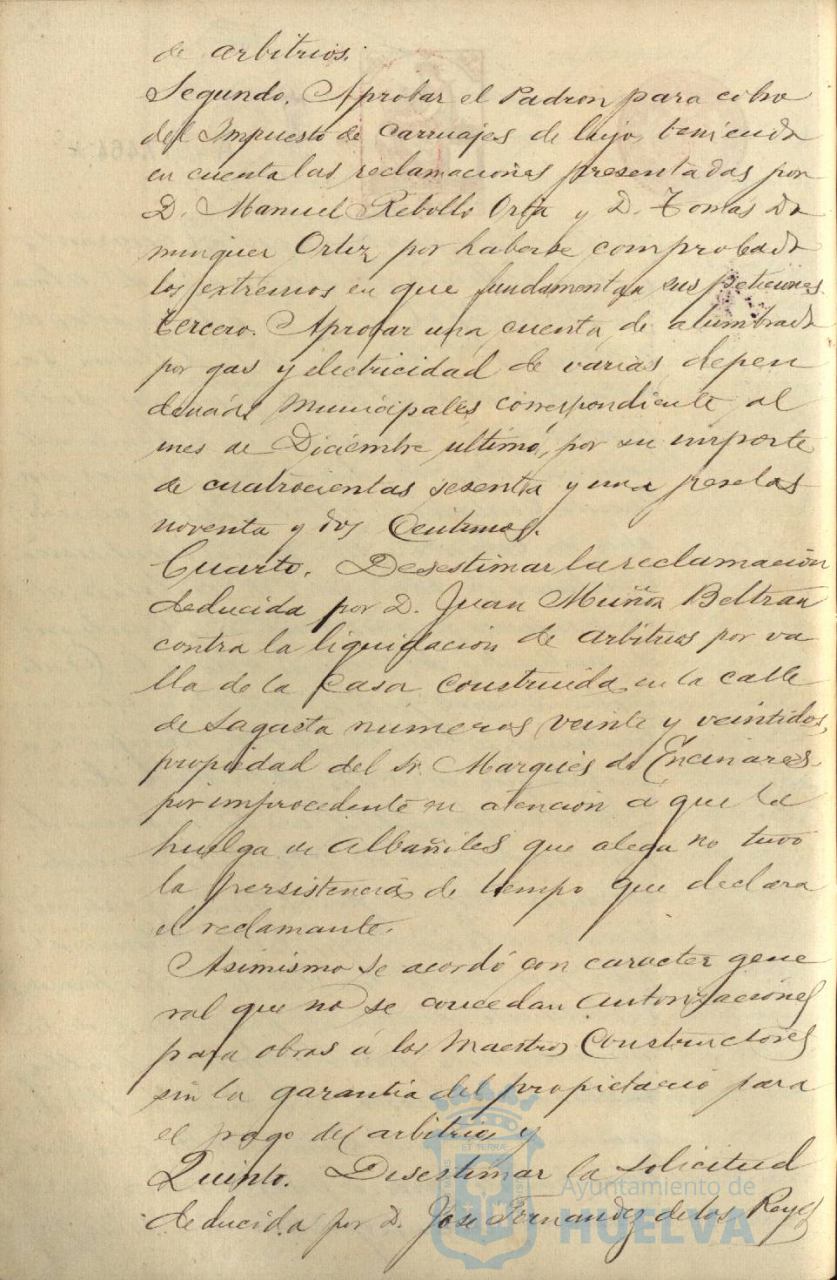 de arbitrios.
Segundo. Aprobar el Padron para cobro
del Impuesto de Carruajes de lujo, teniendo
en cuenta las reclamaciones presentadas por
D. Manuel Rebollo Orta y D. Tomas Do
minguez Ortiz por haberse comprobado
los extremos en que fundamentan sus peticiones.
Tercero. Aprobar una cuenta de alumbrado
por gas y electricidad de varias depen
dencias Municipales correspondiente al
mes de Diciembre ultimo, por su importe
de cuatrocientas sesenta y una pesetas
noventa y dos Centimos.
Cuarto. Desestimar la reclamación
deducida por D. Juan Muñoz Beltrán
contra la liquidacion de arbitrios por va
lla de la Casa Construida en la calle
de Sagasta números veinte y veintidos,
propiedad del Sr. Marqués de Encinares
por improcedente en atencion á que la
huelga de Albañiles que alega no tuvo
la persistencia de tiempo que declara
el reclamante.
Asimismo se acordó con caracter gene
ral que no se concedan autorizaciones
para obras á los Maestros Constructores
sin la garantia del propietario para
el pago de arbitrios y
Quinto. Desestimar la solicitud
deducida por D. Jose Fernandez de los Reyes
ET TERRÆ
Ayuntamiento de
HUELVA